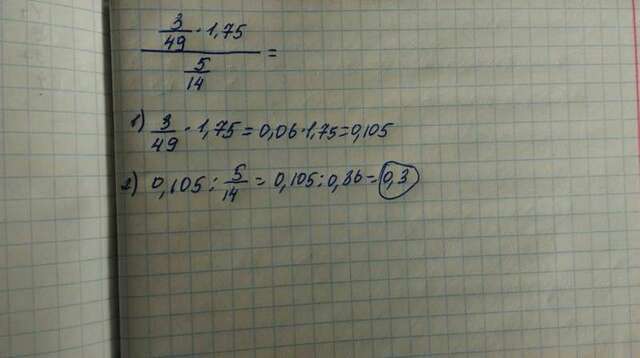 3/49 · 1,75
=
5/14
1) 3/49 · 1,75 = 0,06 · 1,75 = 0,105
2) 0,105 : 5/14 = 0,105 : 0,36 = 0,3